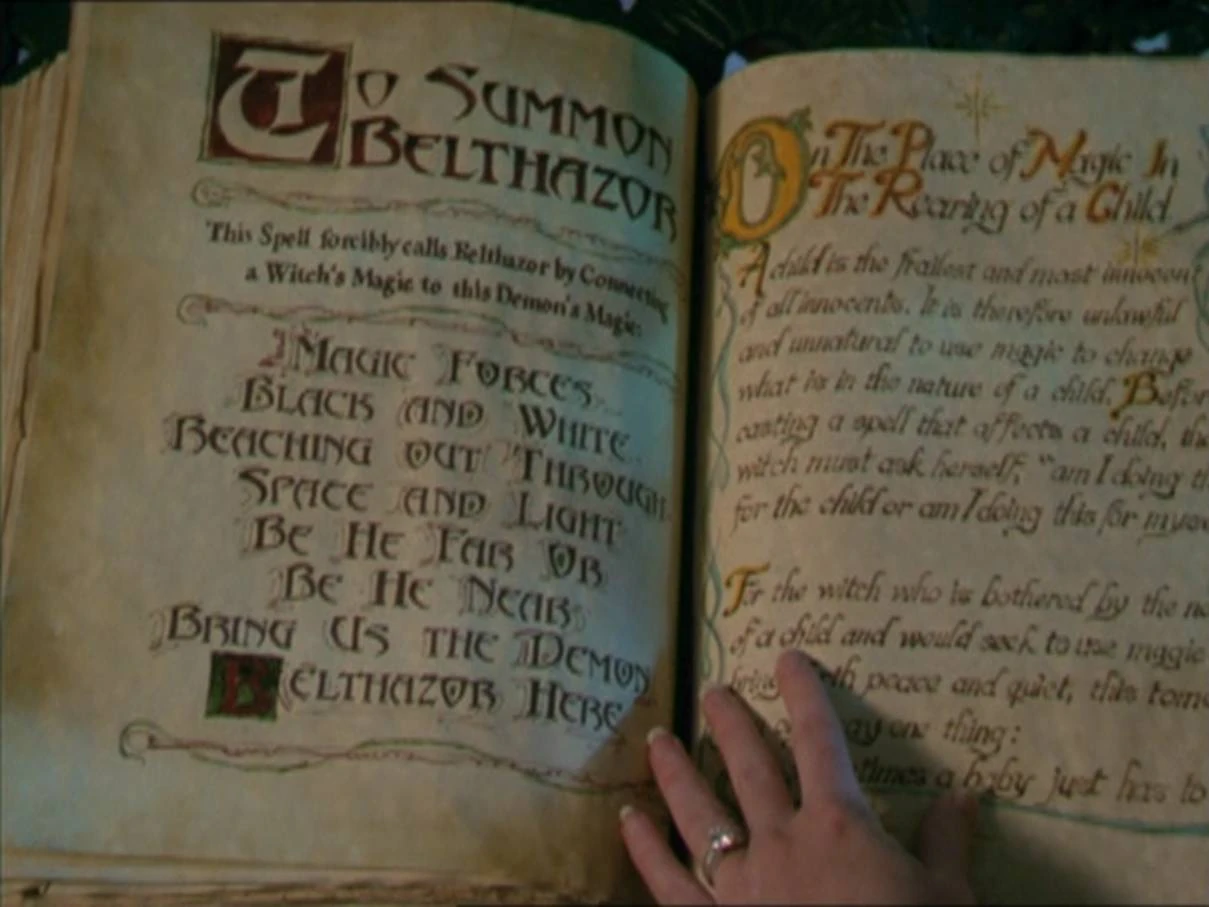 To Summon
Belthazor
This Spell forcibly calls Belthazor by Connecting
a Witch's Magic to this Demon's Magic:
Magic Forces
Black and White
Reaching out Through
Space and Light
Be He Far Or
Be He Near
Bring Us the Demon
Belthazor Here
On The Place of Magic In
The Rearing of a Child
A child is the frailest and most innocent
of all innocents. It is therefore unlawful
and unnatural to use magic to change
what is in the nature of a child. Befor
casting a spell that affects a child, the
witch must ask herself, "am I doing th
for the child or am I doing this for myse
For the witch who is bothered by the no
of a child and would seek to use magic
peace and quiet, this tome
one thing:
a baby just has to